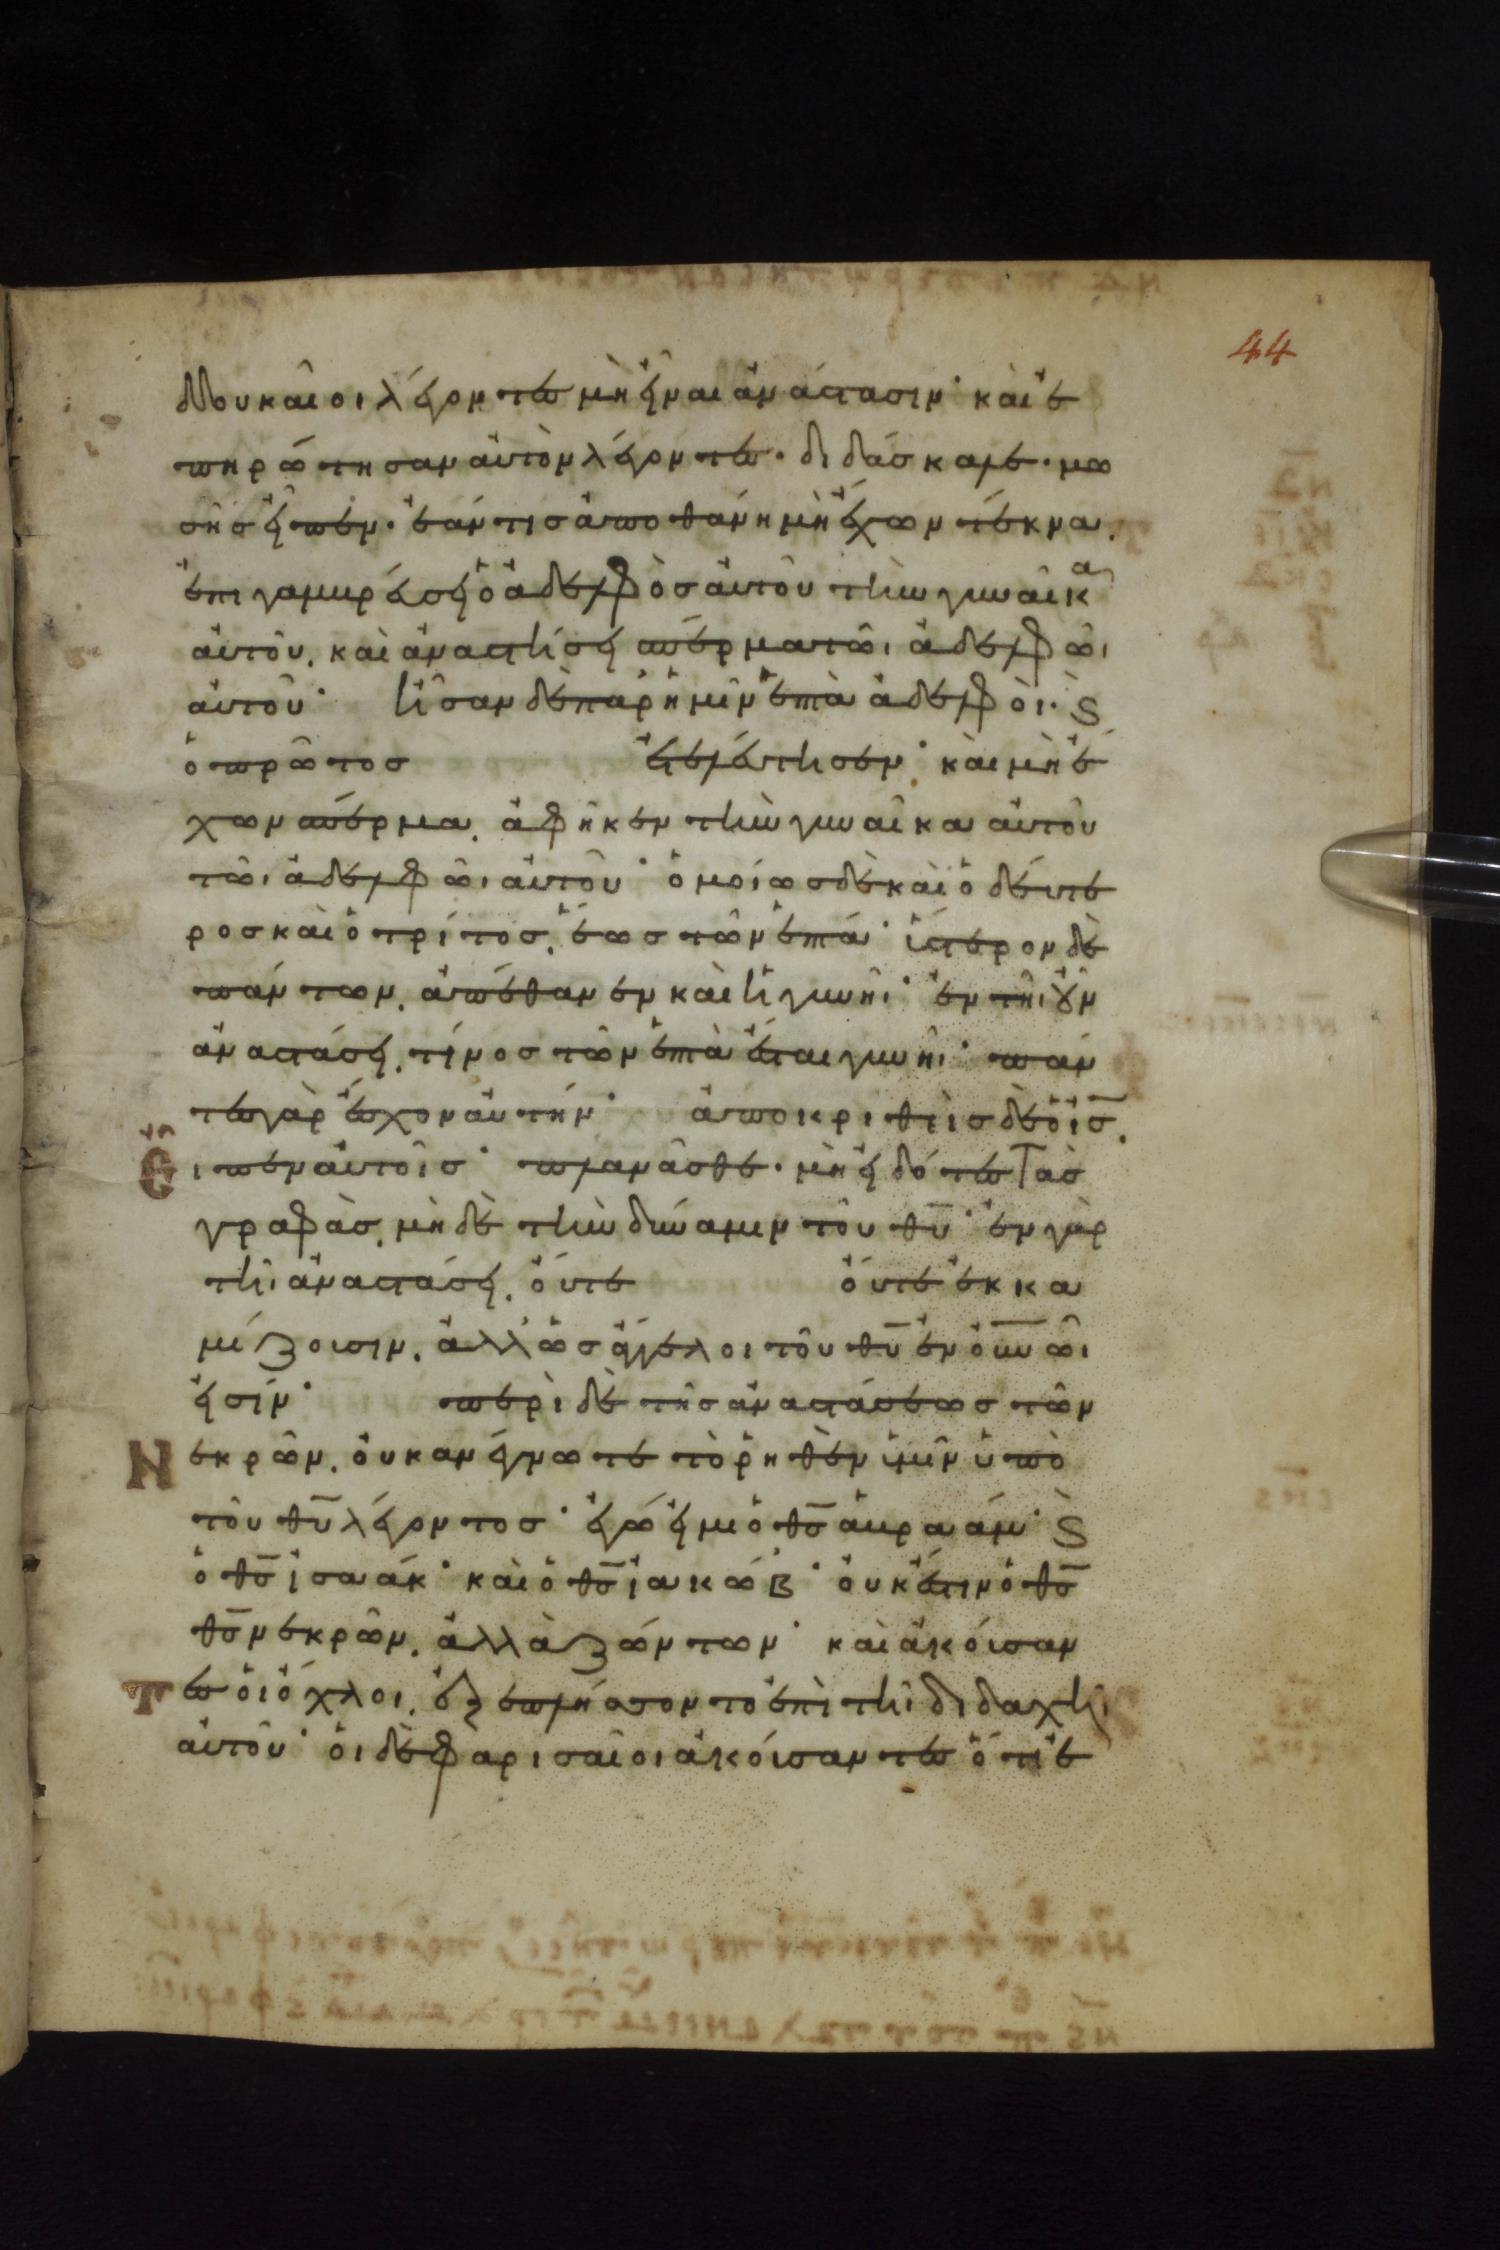 44
δδουκαῖοι λέγοντες μὴ εἶναι ἀνάστασιν· καὶ ἐ
πηρώτησαν αὐτὸν λέγοντες· διδάσκαλε· μω
σῆς εἶπεν· ἐάν τις ἀποθάνη μὴ ἔχων τέκνα,
ἐπιγαμβρεύσει ὁ ἀδελφὸς αὐτοῦ τὴν γυναῖκα
αὐτοῦ, καὶ ἀναστήσει σπέρμα τῶι ἀδελφῶι
αὐτοῦ· ἦσαν δὲ παρ ἡμῖν ἑπτὰ ἀδελφοί· ϗ
ὁ πρῶτος ἐτελεύτησεν· καὶ μὴ ἔ
χων σπέρμα, ἀφῆκεν τὴν γυναῖκα αὐτοῦ
τῶι ἀδελφῶι αὐτοῦ· ὁμοίως δὲ καὶ ὁ δεύτε
ρος καὶ ὁ τρίτος, ἕως τῶν ἑπτά· ὕστερον δὲ
πάντων, ἀπέθανεν καὶ ἡ γυνή· ἐν τῆι οὖν
ἀναστάσει, τίνος τῶν ἑπτὰ ἔσται γυνή· πάν
τες γὰρ ἔσχον αὐτήν· ἀποκριθεὶς δὲ ὁ ἰς̅,
εἶπεν αὐτοῖς· πλανᾶσθε· μὴ εἰδότες τὰς
γραφὰς, μηδὲ τὴν δύναμιν τοῦ θυ̅· ἐν γὰρ
τῆι ἀναστάσει, οὔτε οὔτε ἐκγα
μίζονται, ἀλλ ὡς ἄγγελοι τοῦ θυ̅ ἐν οὐνῶι
εἰσίν· περὶ δὲ τῆς ἀναστάσεως τῶν
Νεκρῶν, οὐκ ἀνέγνωτε τὸ ῥηθὲν ὑμῖν ὑπὸ
τοῦ θυ̅ λέγοντος· ἐγώ εἰμι ὁ θς̅ ἀβραάμ· ϗ
ὁ θς̅ ἰσαάκ· καὶ ὁ θς̅ ἰακώβ· οὐκ ἔστιν ὁ θς̅
θς̅ νεκρῶν, ἀλλὰ ζώντων· καὶ ἀκούσαν
Τες οἱ ὄχλοι, ἐξεπλήσσοντο ἐπὶ τῆι διδαχῆι
αὐτοῦ· οἱ δὲ φαρισαῖοι ἀκούσαντες ὅτι ἐ